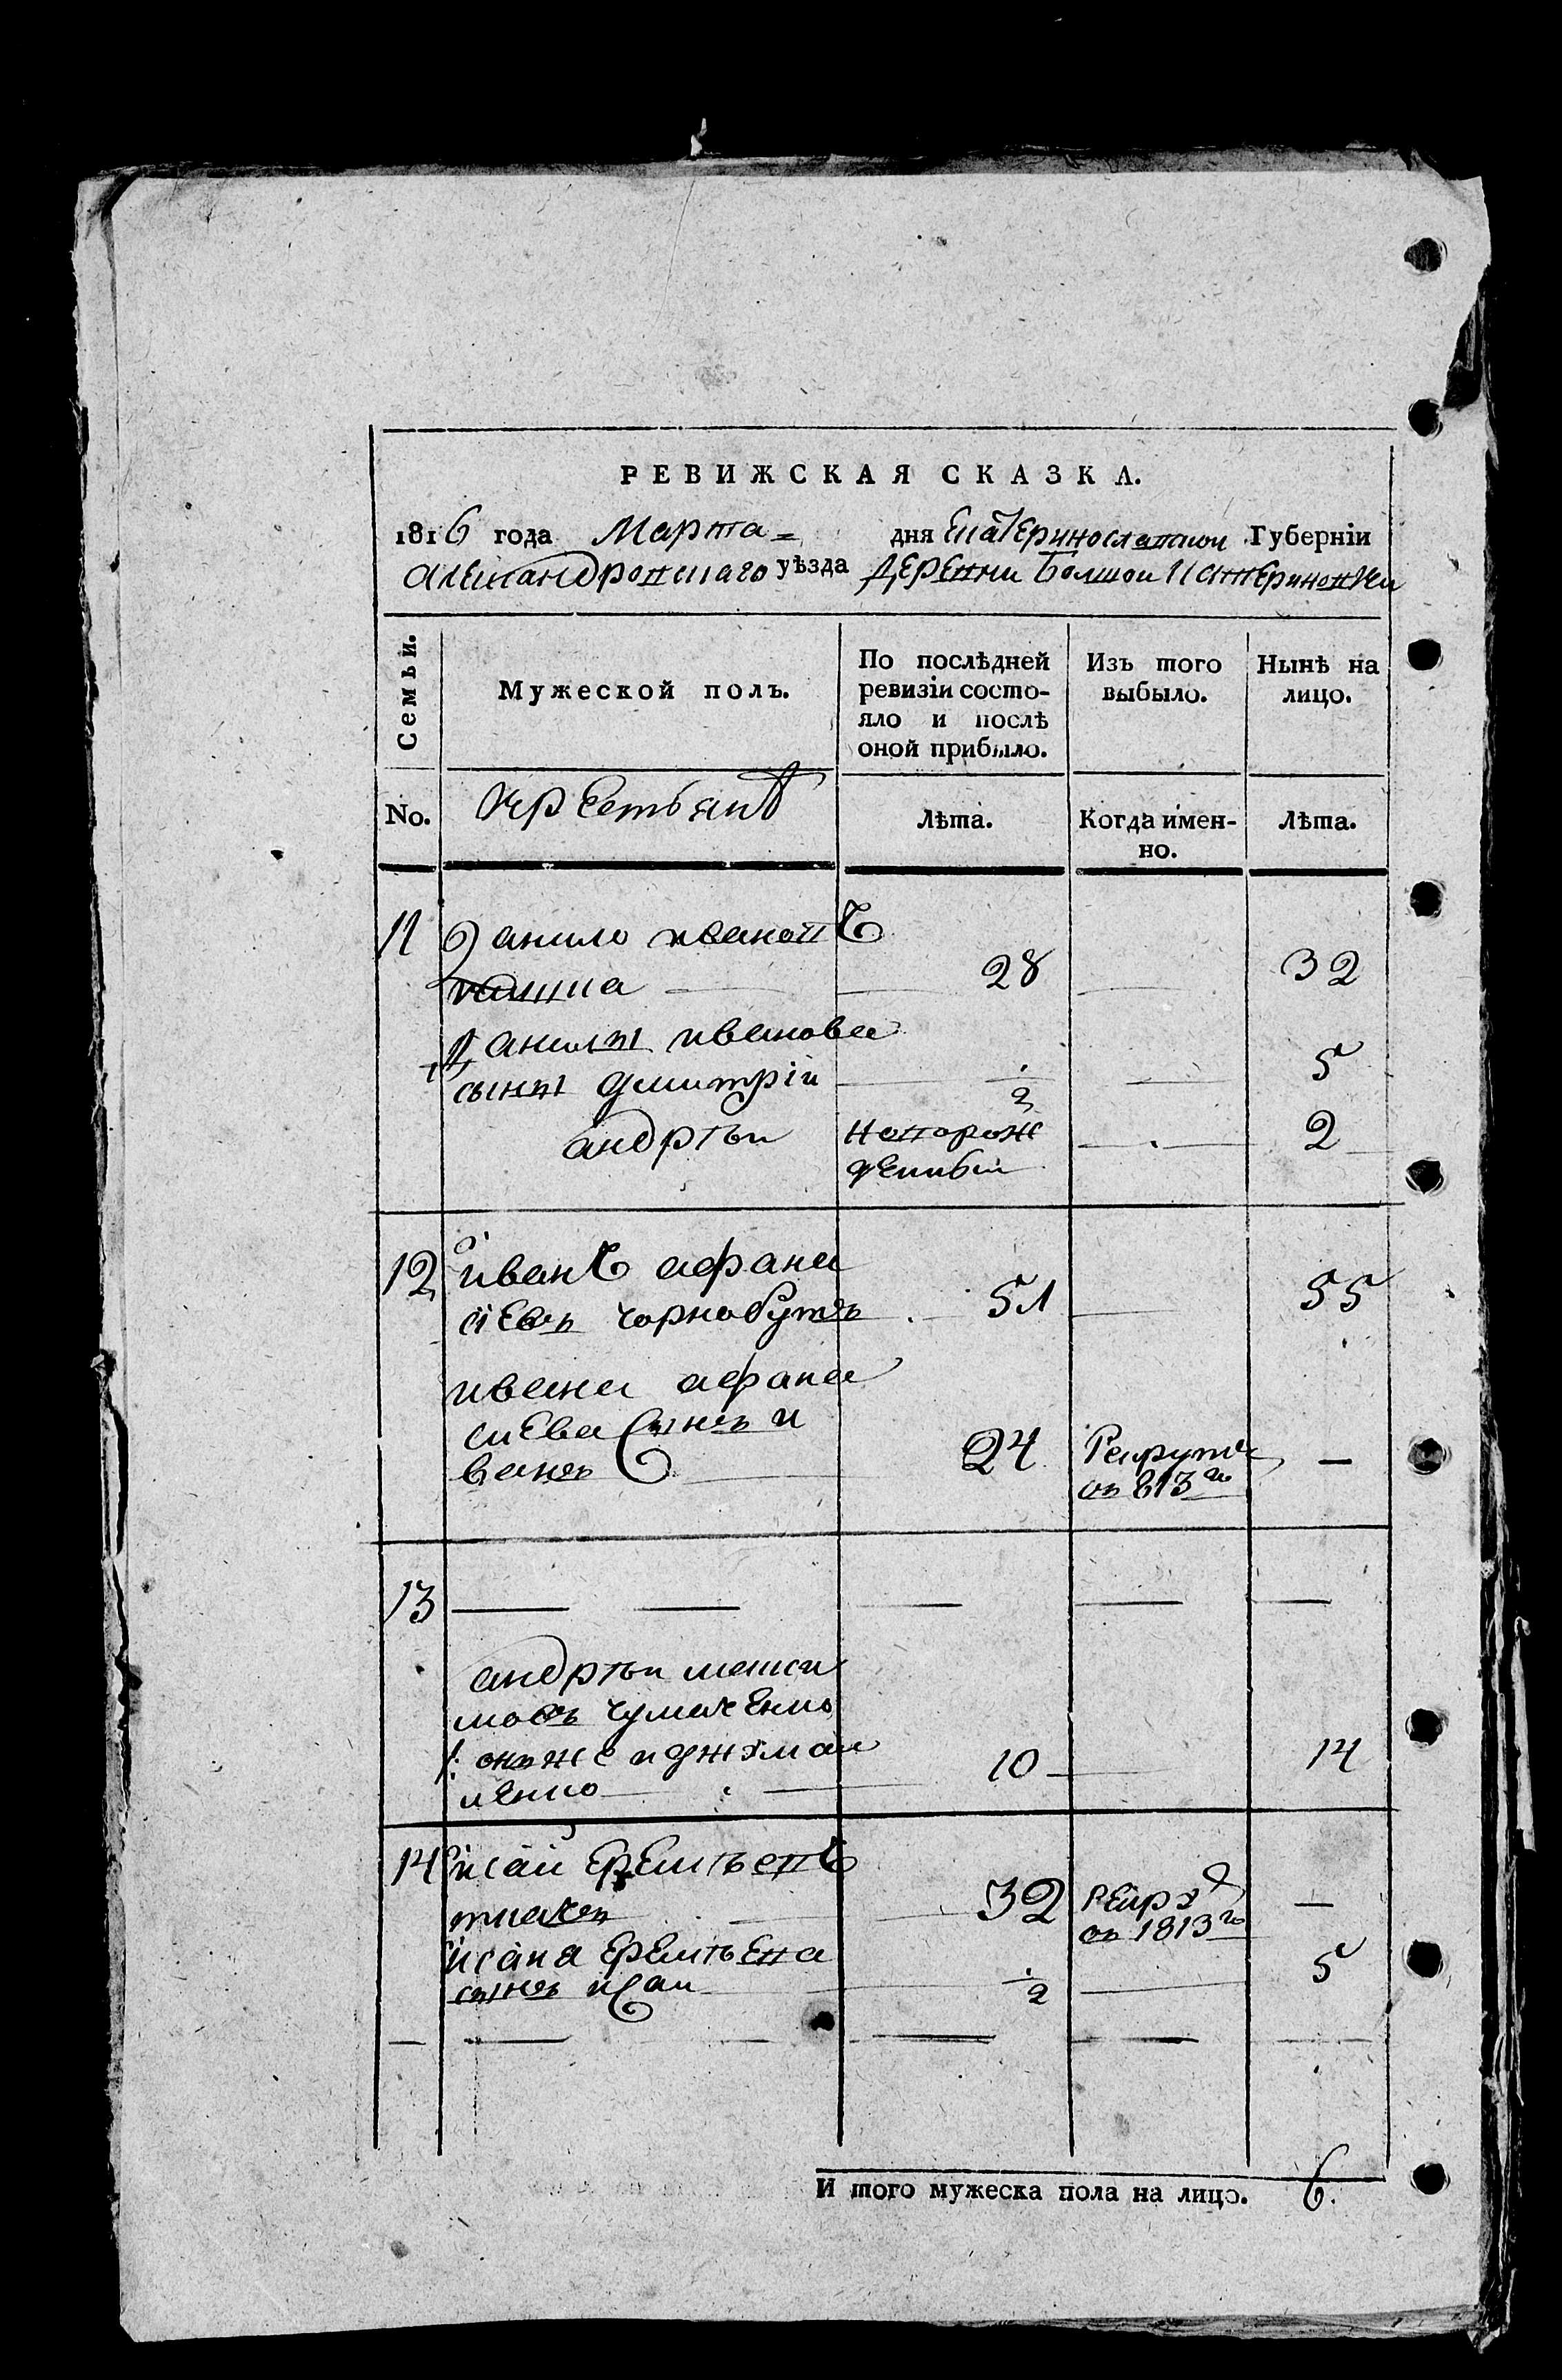 РЕВИЖСКАЯ СКАЗКА.
1816 года Марта дня Екатеринославской Губерніи
александровскаго уѣзда деревни Болшой Катериновки
Семьи.
Мужеской полъ.
По послѣдней
ревизіи состо-
яло и послѣ
оной прибыло.
Изъ того
выбыло.
Нынѣ на
лицо.
No.
крестьянъ
Лѣта.
Когда имен-
но.
Лѣта.
11 данило ивановъ
28 32
данилы иванова
сыны дмитрій ½ 5
андрѣй новорож 2
денный
12 иванъ афана
сіевъ чорнобутъ 51 55
ивана афана
сиева сынъ и
ванъ 24 Рекрутъ —
въ 813го
13 — — — — —
андрѣй макси
мовъ чумаченко
онъ же и
10 14
14 исай еремѣевъ
ткачъ 32 рекру —
въ 1813го
исая еремѣева
сынъ исай ½ 5
И того мужеска пола на лицо. 6.